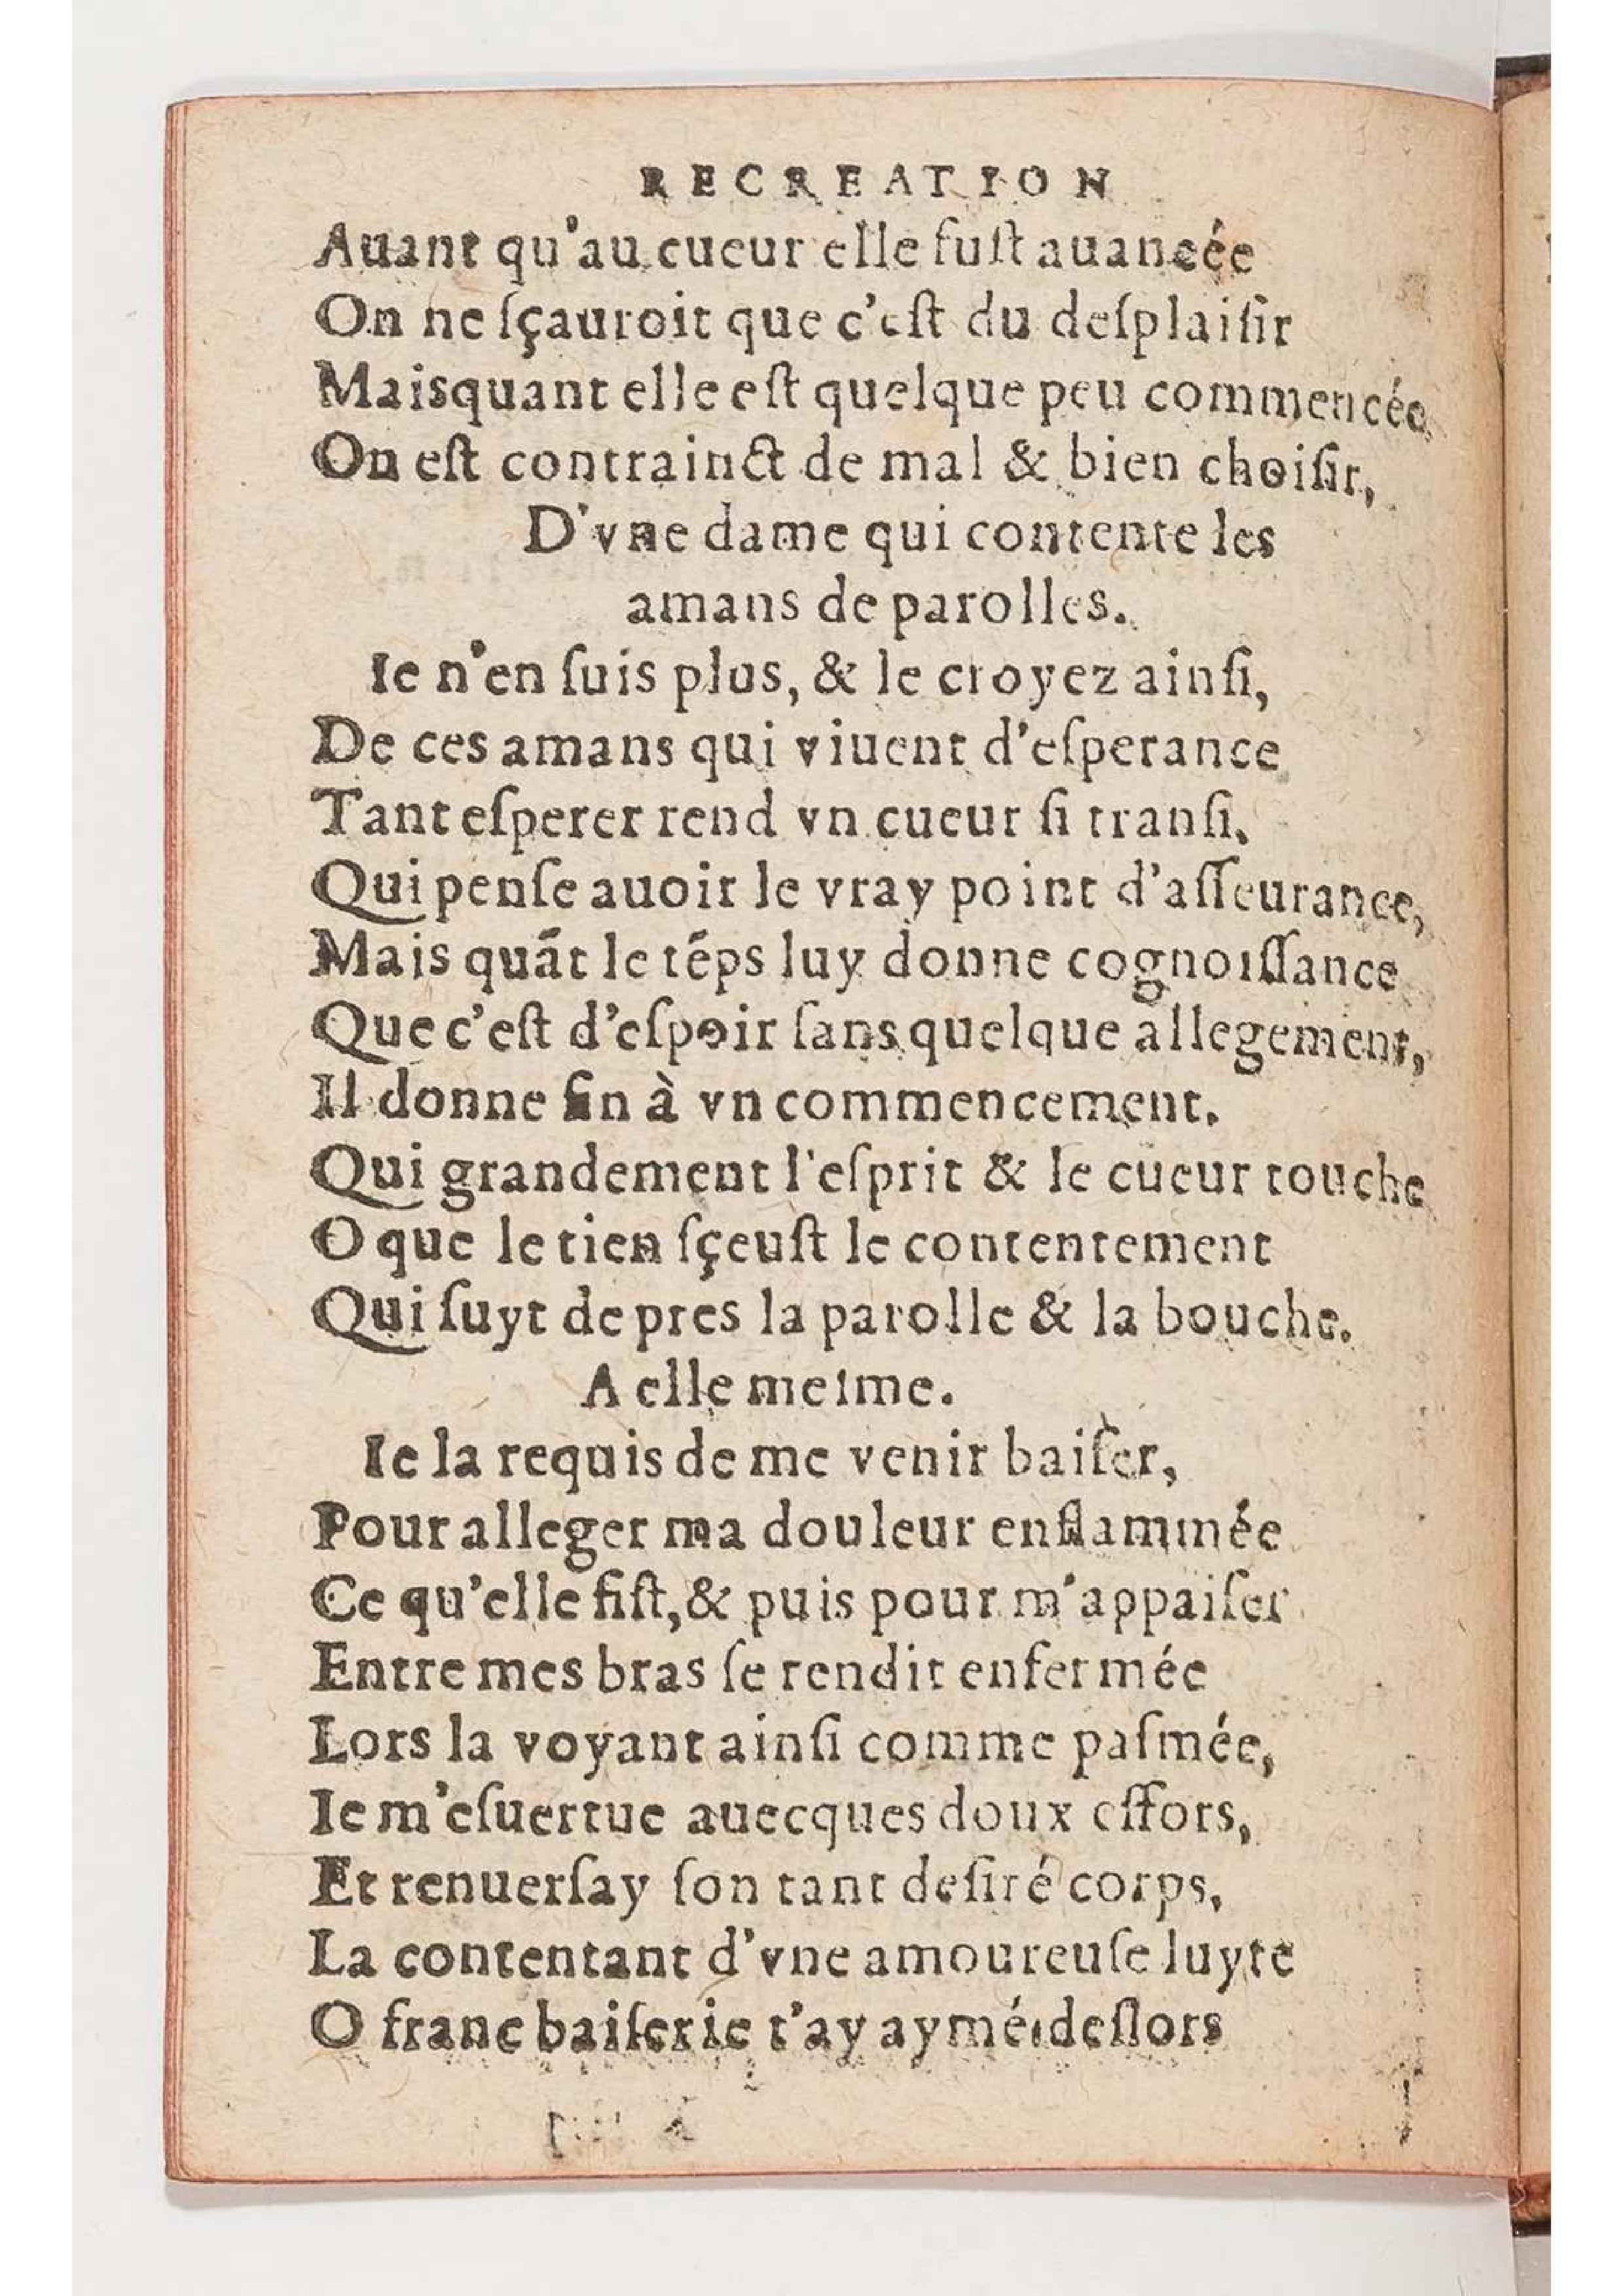 RECREATION
Auant qu'au cueur elle fuſt auancée
On ne ſçauroit que c'eſt du deſplaiſir
Maisquant elle eſt quelque peu commencée
On eſt contrainct de mal & bien choiſir,
D'vne dame qui contente les
amans de parolles.
Ie n'en ſuis plus, & le croyez ainſi,
De ces amans qui viuent d'eſperance
Tant eſperer rend vn cueur ſi tranſi,
Qui penſe auoir le vray point d'aſſeurance,
Mais quãt le tẽps luy donne cognoiſſance
Que c'eſt d'eſpoir ſans quelque allegement,
Il donne fin à vn commencement.
Qui grandement l'eſprit & le cueur touche
O que le tien ſçeuſt le contentement
Qui ſuyt de pres la parolle & la bouche.
A elle meſme.
Ie la requis de me venir baiſer,
Pour alleger ma douleur enflammée
Ce qu'elle fiſt, & puis pour m'appaiſer
Entre mes bras ſe rendit enfermée
Lors la voyant ainſi comme paſmée,
Ie m'eſuertue auecques doux effors,
Et renuerſay ſon tant deſiré corps,
La contentant d'vne amoureuſe luyte
O franc baiſer ie t'ay aymé deſlors